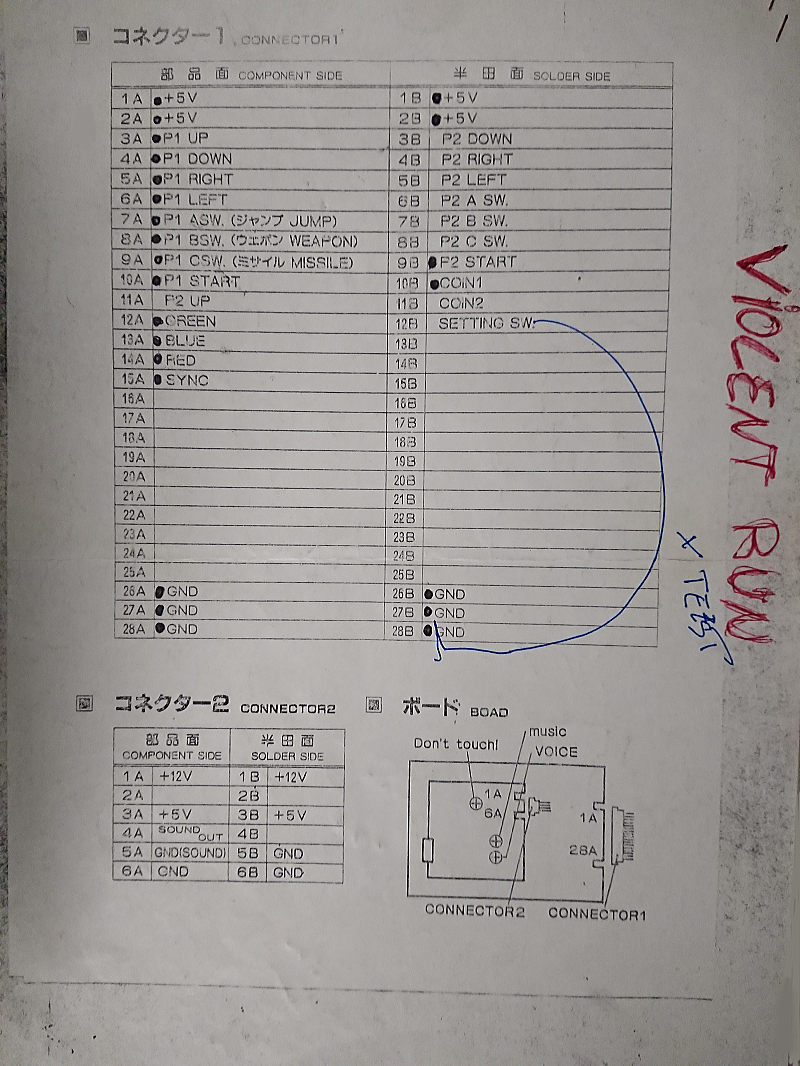 コネクター1 CONNECTOR1
部品面 COMPONENT SIDE 半田面 SOLDER SIDE
1A +5V 1B +5V
2A +5V 2B +5V
3A P1 UP 3B P2 DOWN
4A P1 DOWN 4B P2 RIGHT
5A P1 RIGHT 5B P2 LEFT
6A P1 LEFT 6B P2 A SW.
7A P1 ASW. (ジャンプ JUMP) 7B P2 B SW.
8A P1 BSW. (ウエポン WEAPON) 8B P2 C SW.
9A P1 CSW. (ミサイル MISSILE) 9B P2 START
10A P1 START 10B COIN1
11A P2 UP 11B COIN2
12A GREEN 12B SETTING SW.
13A BLUE 13B
14A RED 14B
15A SYNC 15B
16A 16B
17A 17B
18A 18B
19A 19B
20A 20B
21A 21B
22A 22B
23A 23B
24A 24B
25A 25B
26A GND 26B GND
27A GND 27B GND
28A GND 28B GND
VIOLENT RUN
コネクター2 CONNECTOR2
部品面 半田面
COMPONENT SIDE SOLDER SIDE
1A +12V 1B +12V
2A 2B
3A +5V 3B +5V
4A SOUND OUT 4B
5A GND(SOUND) 5B GND
6A GND 6B GND
ボード BOAD
music
Don't touch!
VOICE
1A
6A
1A
28A
CONNECTOR2 CONNECTOR1